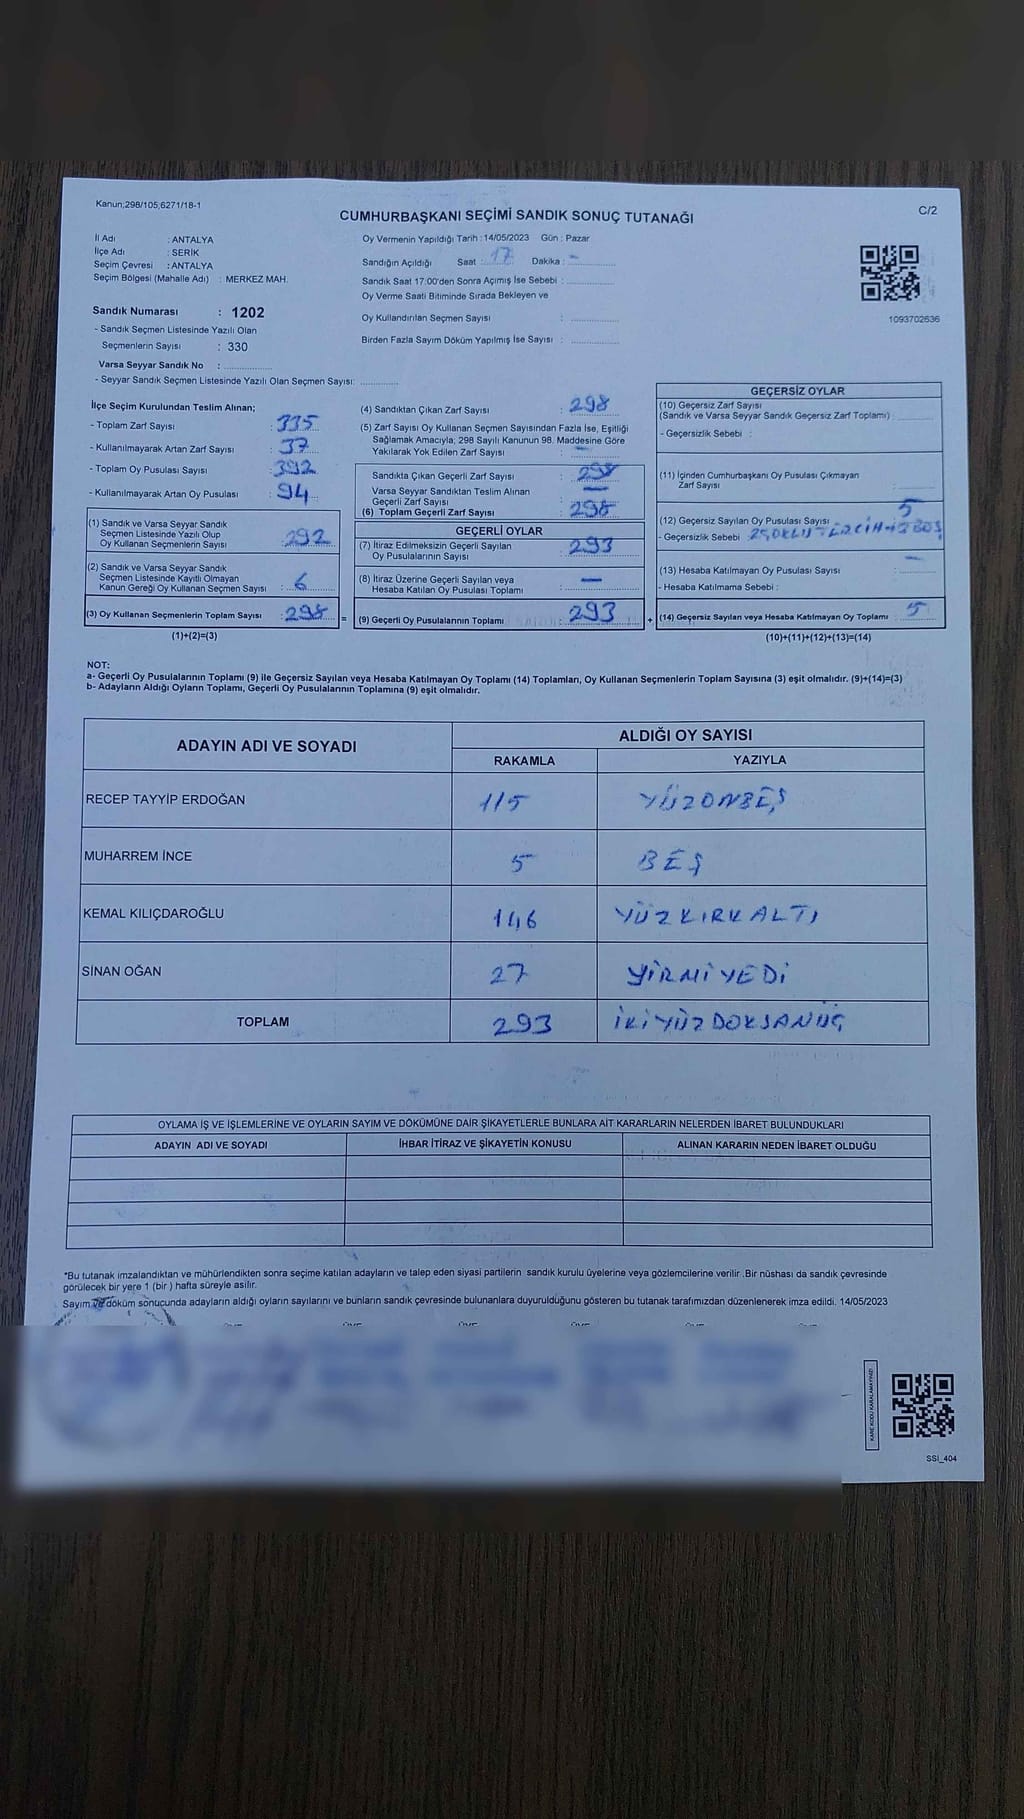 Kanun;298/105,6271/18-1
C/2
CUMHURBAŞKANI SEÇİMİ SANDIK SONUÇ TUTANAĞI
İl Adı : ANTALYA
İlçe Adı : SERİK
Seçim Çevresi : ANTALYA
Seçim Bölgesi (Mahalle Adı) : MERKEZ MAH.
Sandık Numarası : 1202
- Sandık Seçmen Listesinde Yazılı Olan
Seçmenlerin Sayısı : 330
Varsa Seyyar Sandık No :
- Seyyar Sandık Seçmen Listesinde Yazılı Olan Seçmen Sayısı:
Oy Vermenin Yapıldığı Tarih : 14/05/2023 Gün : Pazar
Sandığın Açıldığı Saat : 17 Dakika : -
Sandık Saat 17:00'den Sonra Açımış İse Sebebi :
Oy Verme Saati Bitiminde Sırada Bekleyen ve
Oy Kullandırılan Seçmen Sayısı :
Birden Fazla Sayım Döküm Yapılmış İse Sayısı :
1093702636
İlçe Seçim Kurulundan Teslim Alınan;
- Toplam Zarf Sayısı : 335
- Kullanılmayarak Artan Zarf Sayısı : 37
- Toplam Oy Pusulası Sayısı : 392
- Kullanılmayarak Artan Oy Pusulası : 94
(1) Sandık ve Varsa Seyyar Sandık
Seçmen Listesinde Yazılı Olup
Oy Kullanan Seçmenlerin Sayısı : 292
(2) Sandık ve Varsa Seyyar Sandık
Seçmen Listesinde Kayıtlı Olmayan
Kanun Gereği Oy Kullanan Seçmen Sayısı : 6
(3) Oy Kullanan Seçmenlerin Toplam Sayısı : 298 =
(1)+(2)=(3)
(4) Sandıktan Çıkan Zarf Sayısı : 298
(5) Zarf Sayısı Oy Kullanan Seçmen Sayısından Fazla İse, Eşitliği
Sağlamak Amacıyla; 298 Sayılı Kanunun 98. Maddesine Göre
Yakılarak Yok Edilen Zarf Sayısı : -
Sandıkta Çıkan Geçerli Zarf Sayısı : 298
Varsa Seyyar Sandıktan Teslim Alınan
Geçerli Zarf Sayısı : -
(6) Toplam Geçerli Zarf Sayısı : 298
GEÇERLİ OYLAR
(7) İtiraz Edilmeksizin Geçerli Sayılan
Oy Pusulalarının Sayısı : 293
(8) İtiraz Üzerine Geçerli Sayılan veya
Hesaba Katılan Oy Pusulası Toplamı : -
(9) Geçerli Oy Pusulalarının Toplamı : 293 +
GEÇERSİZ OYLAR
(10) Geçersiz Zarf Sayısı
(Sandık ve Varsa Seyyar Sandık Geçersiz Zarf Toplamı)
- Geçersizlik Sebebi :
(11) İçinden Cumhurbaşkanı Oy Pusulası Çıkmayan
Zarf Sayısı :
(12) Geçersiz Sayılan Oy Pusulası Sayısı : 5
- Geçersizlik Sebebi
(13) Hesaba Katılmayan Oy Pusulası Sayısı : -
- Hesaba Katılmama Sebebi :
(14) Geçersiz Sayılan veya Hesaba Katılmayan Oy Toplamı : 5
(10)+(11)+(12)+(13)=(14)
NOT:
a- Geçerli Oy Pusulalarının Toplamı (9) ile Geçersiz Sayılan veya Hesaba Katılmayan Oy Toplamı (14) Toplamları, Oy Kullanan Seçmenlerin Toplam Sayısına (3) eşit olmalıdır. (9)+(14)=(3)
b- Adayların Aldığı Oyların Toplamı, Geçerli Oy Pusulalarının Toplamına (9) eşit olmalıdır.
ADAYIN ADI VE SOYADI
ALDIĞI OY SAYISI
RAKAMLA YAZIYLA
RECEP TAYYİP ERDOĞAN 115 YÜZONBEŞ
MUHARREM İNCE 5 BEŞ
KEMAL KILIÇDAROĞLU 146 YÜZKIRKALTI
SİNAN OĞAN 27 YİRMİYEDİ
TOPLAM 293 İKİYÜZDOKSANÜÇ
OYLAMA İŞ VE İŞLEMLERİNE VE OYLARIN SAYIM VE DÖKÜMÜNE DAİR ŞİKAYETLERLE BUNLARA AİT KARARLARIN NELERDEN İBARET BULUNDUKLARI
ADAYIN ADI VE SOYADI İHBAR İTİRAZ VE ŞİKAYETİN KONUSU ALINAN KARARIN NEDEN İBARET OLDUĞU
*Bu tutanak imzalandıktan ve mühürlendikten sonra seçime katılan adayların ve talep eden siyasi partilerin sandık kurulu üyelerine veya gözlemcilerine verilir .Bir nüshası da sandık çevresinde
görülecek bir yere 1 (bir ) hafta süreyle asılır.
Sayım ve döküm sonucunda adayların aldığı oyların sayılarını ve bunların sandık çevresinde bulunanlara duyurulduğunu gösteren bu tutanak tarafımızdan düzenlenerek imza edildi. 14/05/2023
KARE KODU KARALAMAYINIZ!
SSI_404